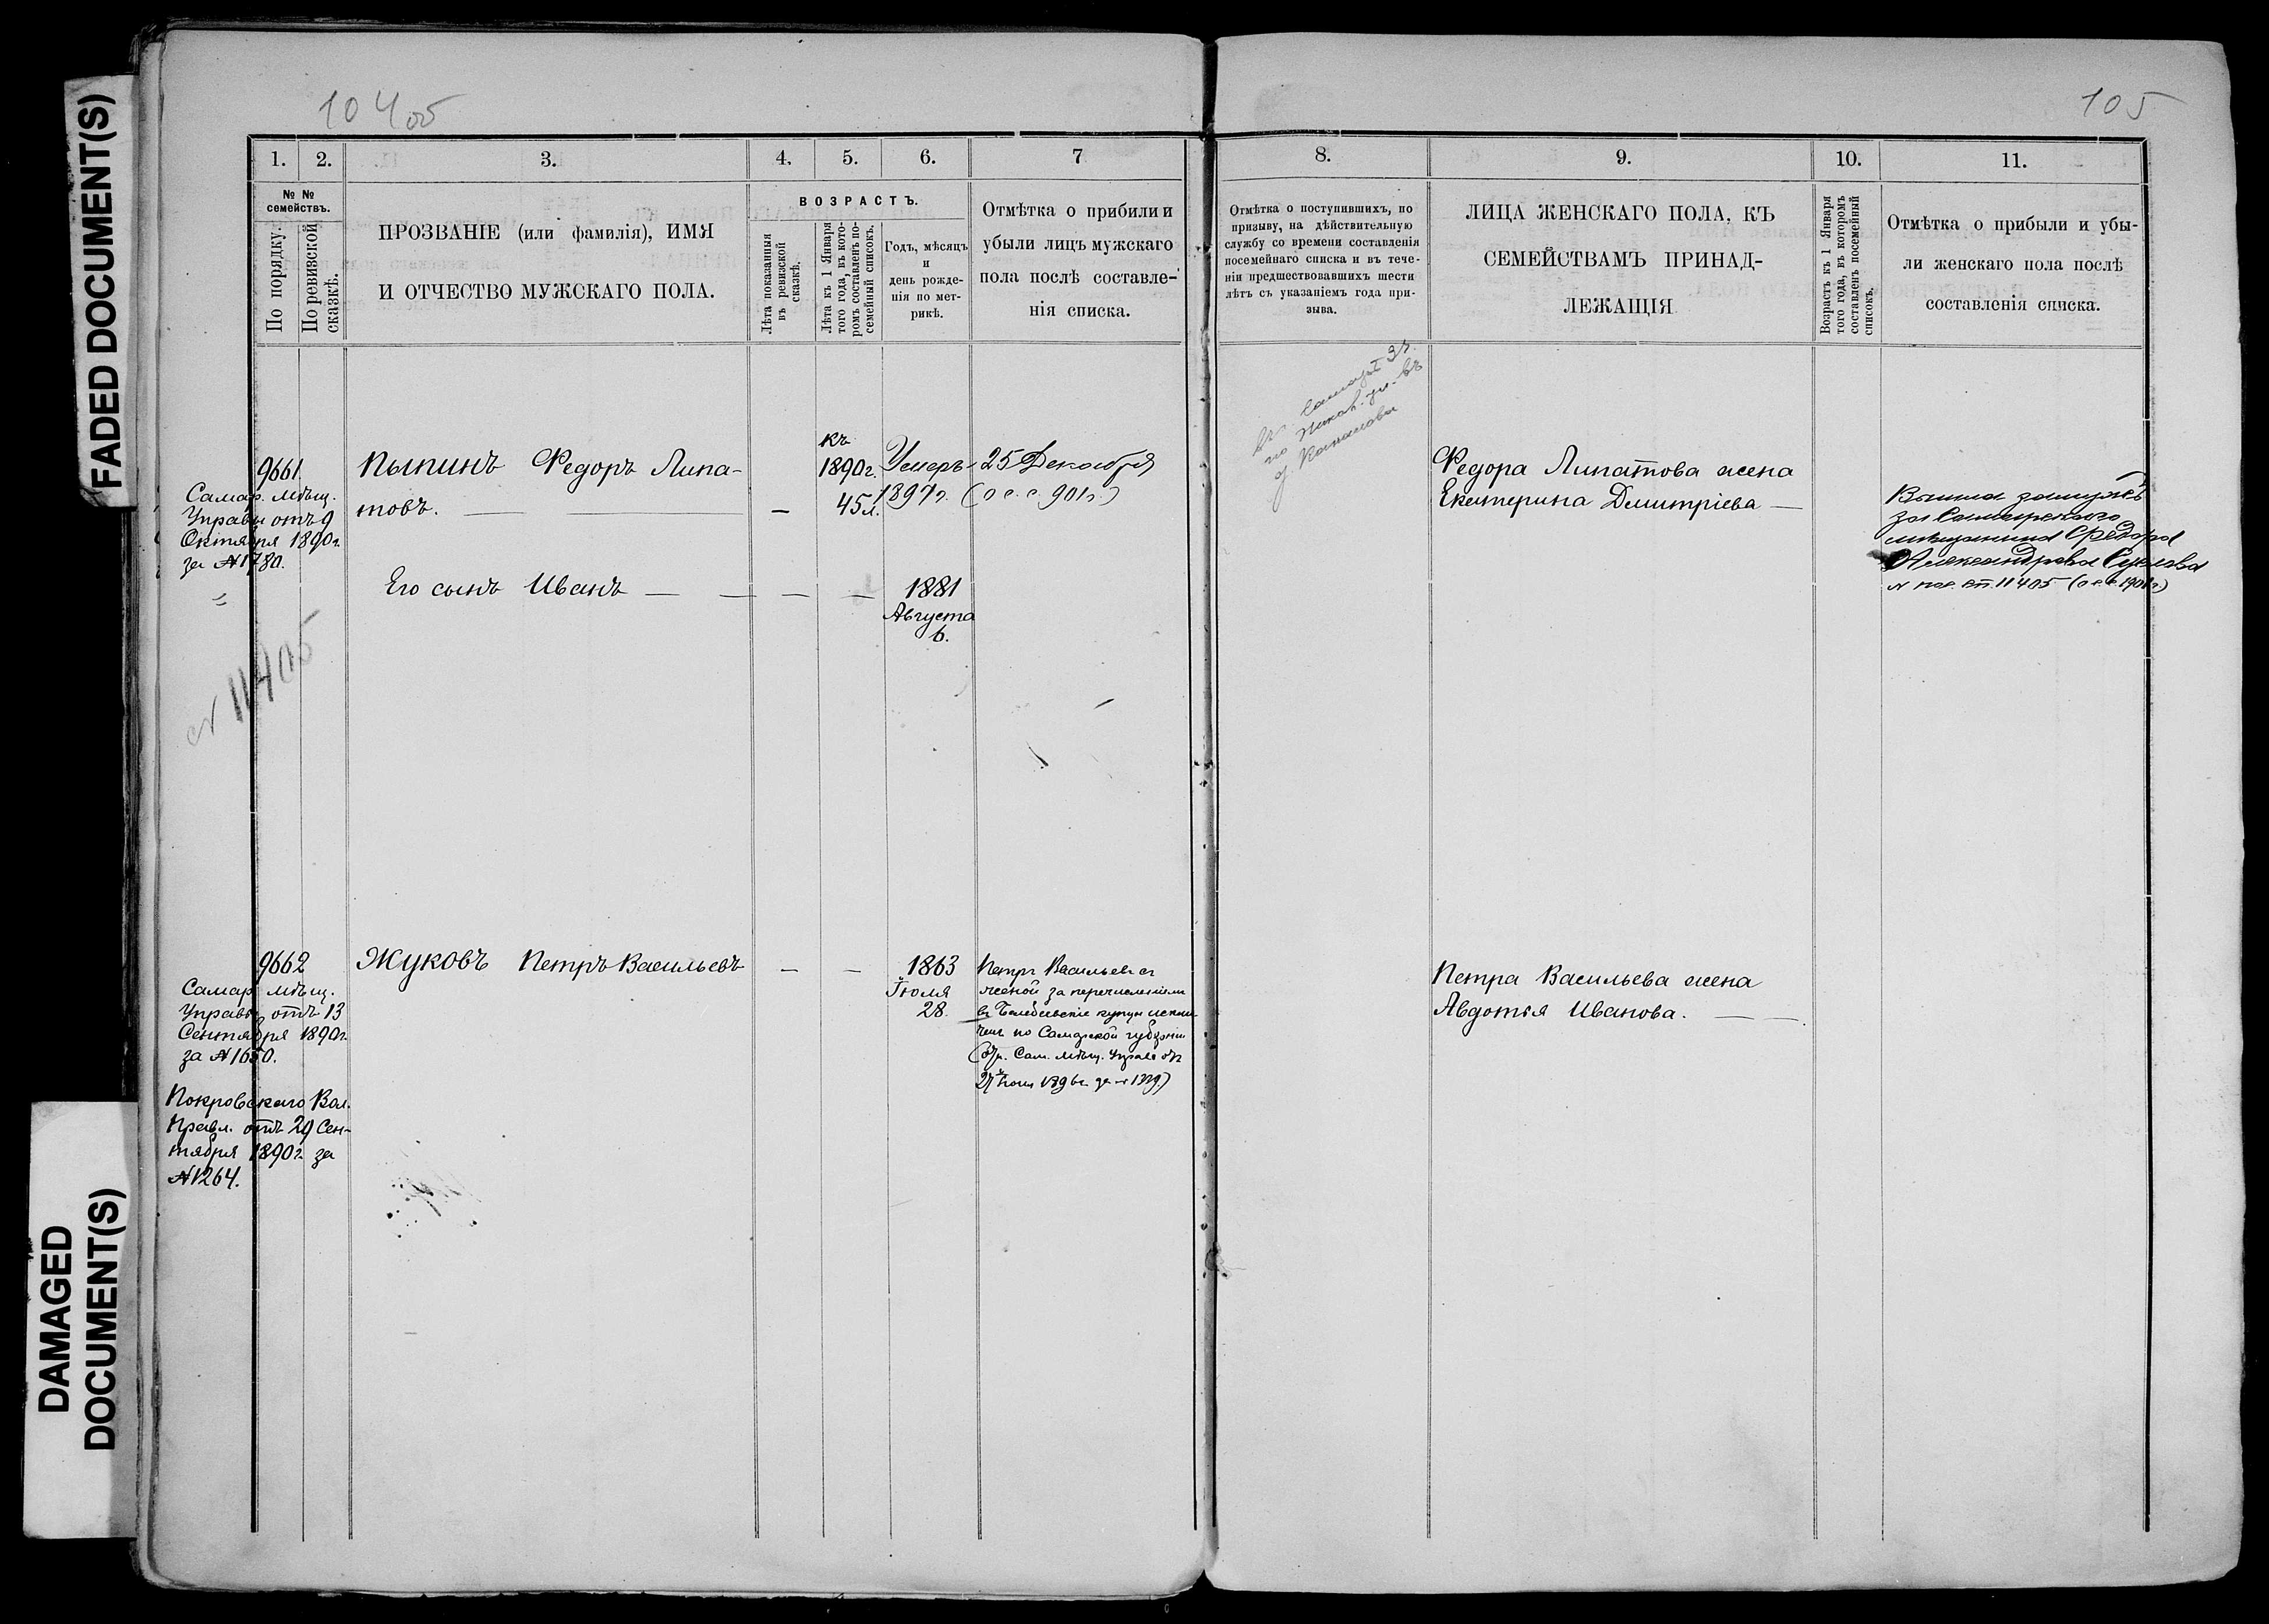 FADED DOCUMENT(S)
DAMAGED
DOCUMENT(S)
104 об
1. 2. 3. 4. 5. 6. 7
№ №
семействъ.
По порядку.
По ревизской
сказкѣ.
ПРОЗВАНІЕ (или фамилія), ИМЯ
И ОТЧЕСТВО МУЖСКАГО ПОЛА.
ВОЗРАСТЪ.
Лѣта показанныя
въ ревизской
сказкѣ.
Лѣта къ 1 Января
того года, въ кото-
ромъ составленъ по-
семейный списокъ.
Годъ, мѣсяцъ
и
день рожде-
нія по мет-
рикѣ.
Отмѣтка о прибыли и
убыли лицъ мужскаго
пола послѣ составле-
нія списка.
9661
Самар. мѣщ.
Управы отъ 9
Октября 1890г.
за №1780.
№ 11405
Пыпинъ Федоръ Липа-
товъ. — — —
къ
1890г.
45л.
Умеръ 25 Декабря
1897г. (о с. с. 901г.)
Его сынъ Иванъ — — — —
1881
Августа
6.
9662
Самар. мѣщ.
Управы отъ 13
Сентября 1890г.
за №1650.
Покровскаго Вол.
Правл. отъ 29 Сен-
тября 1890г. за
№1264.
Жуковъ Петръ Васильевъ — —
1863
Іюля
28.
Петръ Васильевъ съ
женой за перечисленіемъ
въ Белебеевскіе купцы исклю-
ченъ по Самарской губерніи
Сам. мѣщ. Управѣ отъ
27 Іюня 1896г. за №1329.)
105
8. 9. 10. 11.
Отмѣтка о поступившихъ, по
призыву, на дѣйствительную
службу со времени составленія
посемейнаго списка и въ тече-
ніи предшествовавшихъ шести
лѣтъ съ указаніемъ года при-
зыва.
ЛИЦА ЖЕНСКАГО ПОЛА, КЪ
СЕМЕЙСТВАМЪ ПРИНАД-
ЛЕЖАЩІЯ
Возрастъ къ 1 Января
того года, въ которомъ
составленъ посемейный
списокъ.
Отмѣтка о прибыли и убы-
ли женскаго пола послѣ
составленія списка.
въ Самарѣ 3ч.
по
Федора Липатова жена
Екатерина Дмитріева —
Вышла замужъ
за Самарскаго
мѣщанина Федора
Александрова
№ пос. сп. 11405 (о с. с. 1901г.)
Петра Васильева жена
Авдотья Иванова. — —